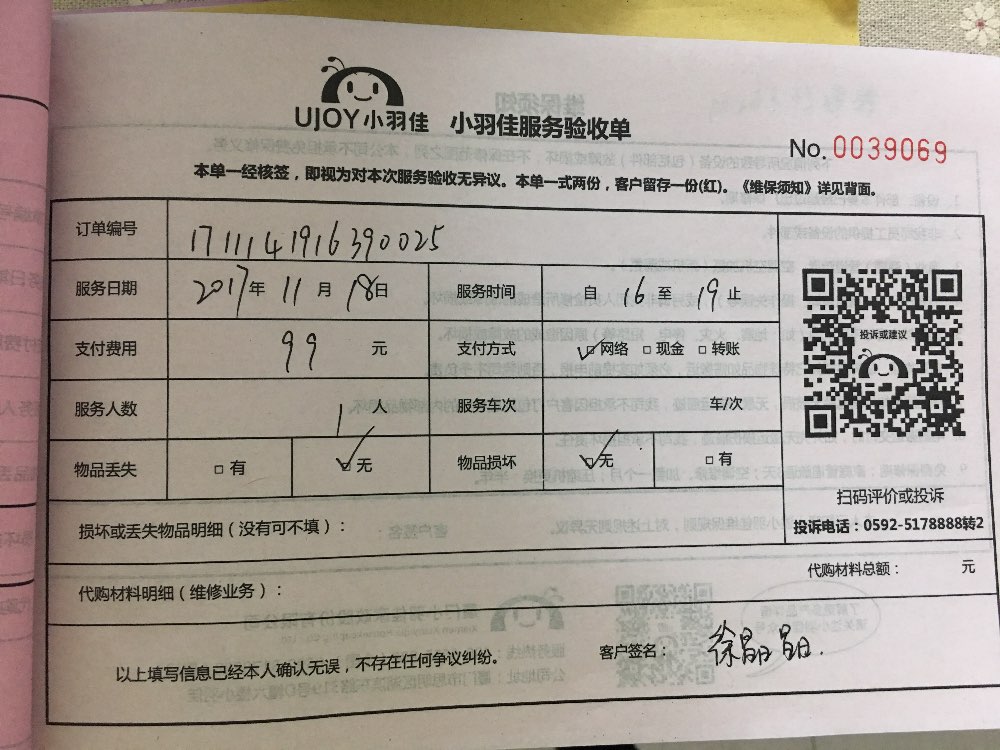 UJOY小羽佳 小羽佳服务验收单
No. 0039069
本单一经核签，即视为对本次服务验收无异议。本单一式两份，客户留存一份(红)。《维保须知》详见背面。
订单编号 1711141916390025
服务日期 2017年 11月 18日 服务时间 自 16 至 19 止
支付费用 99 元 支付方式 ☑网络 □现金 □转账
服务人数 1 人 服务车次 车/次
物品丢失 □有 ☑无 物品损坏 ☑无 □有
投诉或建议
扫码评价或投诉
投诉电话：0592-5178888转2
损坏或丢失物品明细（没有可不填）：
代购材料明细（维修业务）： 代购材料总额： 元
以上填写信息已经本人确认无误，不存在任何争议纠纷。 客户签名： 徐晶晶